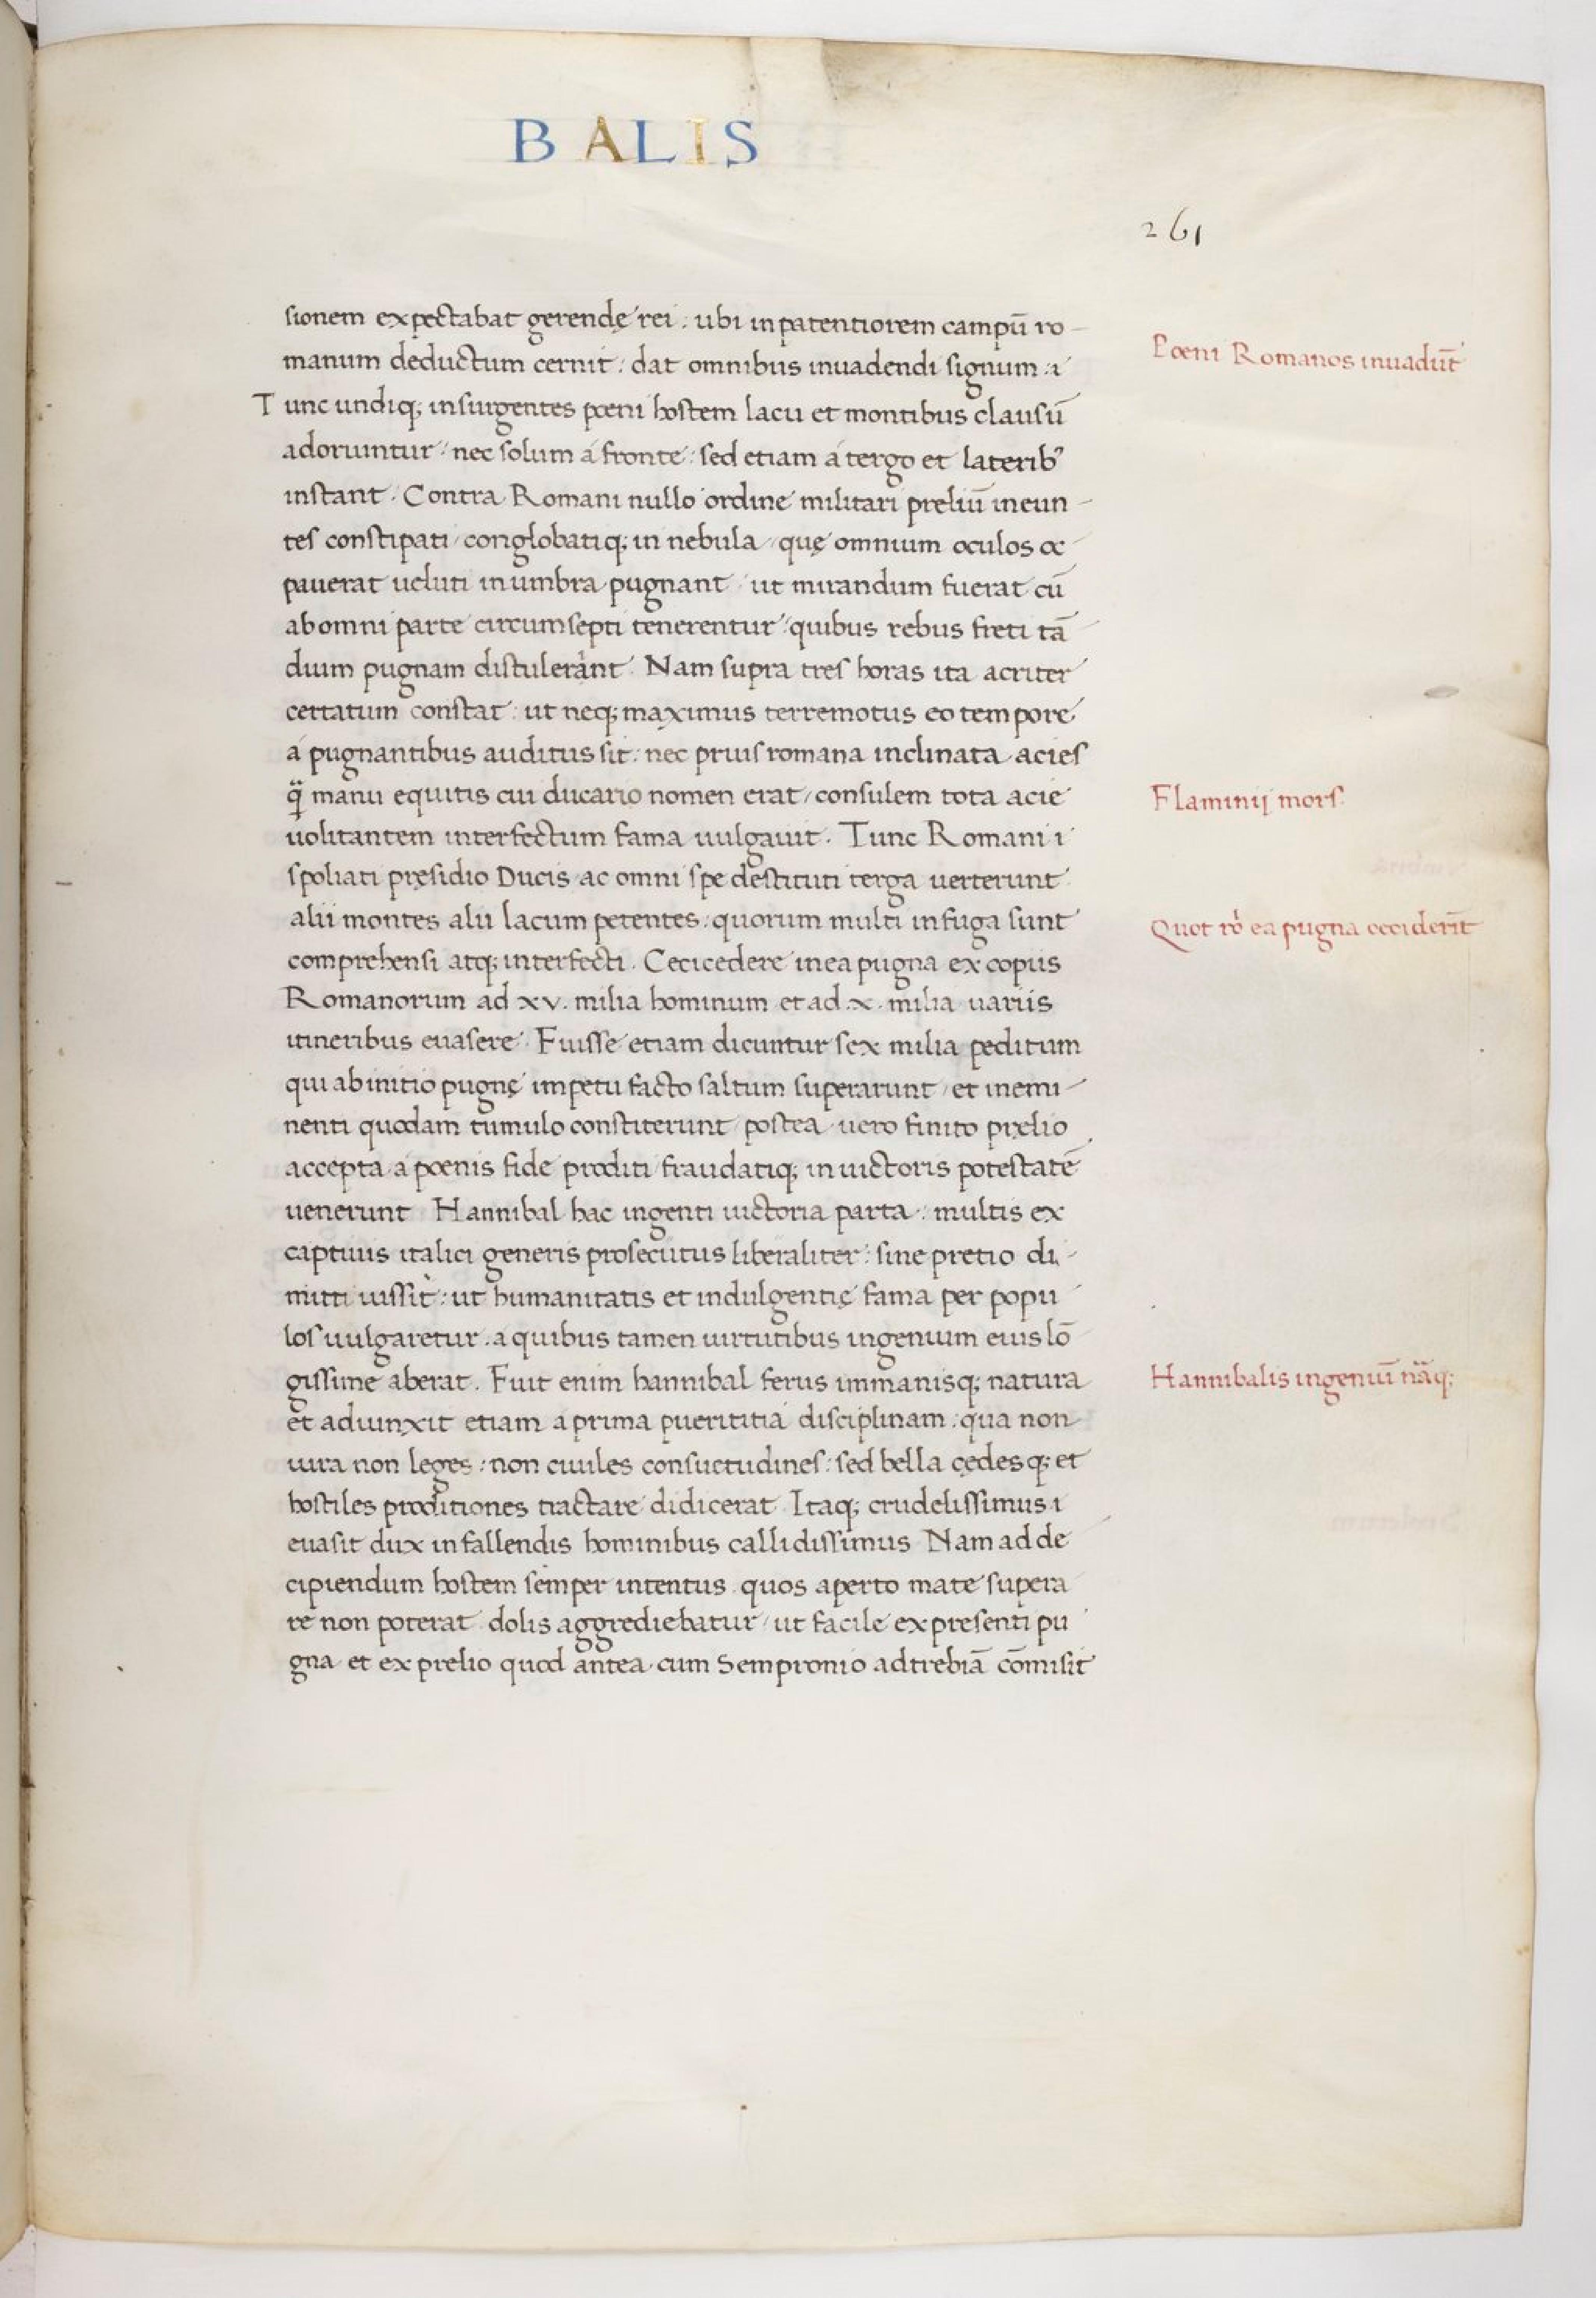 BALIS
261
sionem expectabat gerendę rei : ubi in patentiorem campū ro-
manum deductum cernit : dat omnibus inuadendi signum :
Poeni Romanos inuadūt
Tunc undiq; insurgentes pœni hostem lacu et montibus clausū
adoriuntur : nec solum á fronte : sed etiam a tergo et lateribꝰ
instant . Contra Romani nullo ordine militari preliū ineun-
tes constipati / conglobatiq; in nebula / quę omnium oculos oc-
pauerat ueluti in umbra pugnant / ut mirandum fuerat cū
ab omni parte circumsepti tenerentur : quibus rebus freti tā
dium pugnam distulerant . Nam supra tres horas ita acriter
certatum constat : ut neq; maximus terremotus eo tempore
á pugnantibus auditus sit : nec prius romana inclinata acies
q̄ manu equitis cui ducario nomen erat / consulem tota acie
Flaminij mors .
uolitantem interfectum fama uulgauit . Tunc Romani
spoliati pręsidio Ducis ac omni spe destituti terga uerterunt
alii montes alii lacum petentes : quorum multi in fuga sunt
Quot ro ea pugna occiderīt
comprehensi atq; interfecti . Cecicedere in ea pugna ex copiis
Romanorum ad xv . milia hominum et ad .x. milia uariis
itineribus euasere . Fuisse etiam dicuntur sex milia peditum
qui ab initio pugnę impetu facto saltum superarunt / et in emi-
nenti quodam tumulo constiterunt / postea uero finito prelio
accepta a pœnis fide proditi fraudatiq; in uictoris potestatē
uenerunt Hannibal hac ingenti uictoria parta : multis ex
captiuis italici generis prosecutus liberaliter : sine pretio di-
mitti iussit : ut humanitatis et indulgentię fama per popu
los uulgaretur . a quibus tamen uirtutibus ingenium eius lō
gissime aberat . Fuit enim hannibal ferus immanisq; natura
Hannibalis ingeniū nāq;
et adiunxit etiam a prima pueritiia disciplinam : qua non
iura non leges : non ciuiles consuetudines : sed bella cędesq; et
hostiles proditiones tractare didicerat . Itaq; crudelissimus
euasit dux in fallendis hominibus callidissimus Nam ad de
cipiendum hostem semper intentus . quos aperto mate supera
re non poterat dolis aggrediebatur / ut facile ex presenti pu
gna et ex prelio quod antea cum Sempronio ad trebiā cōmisit